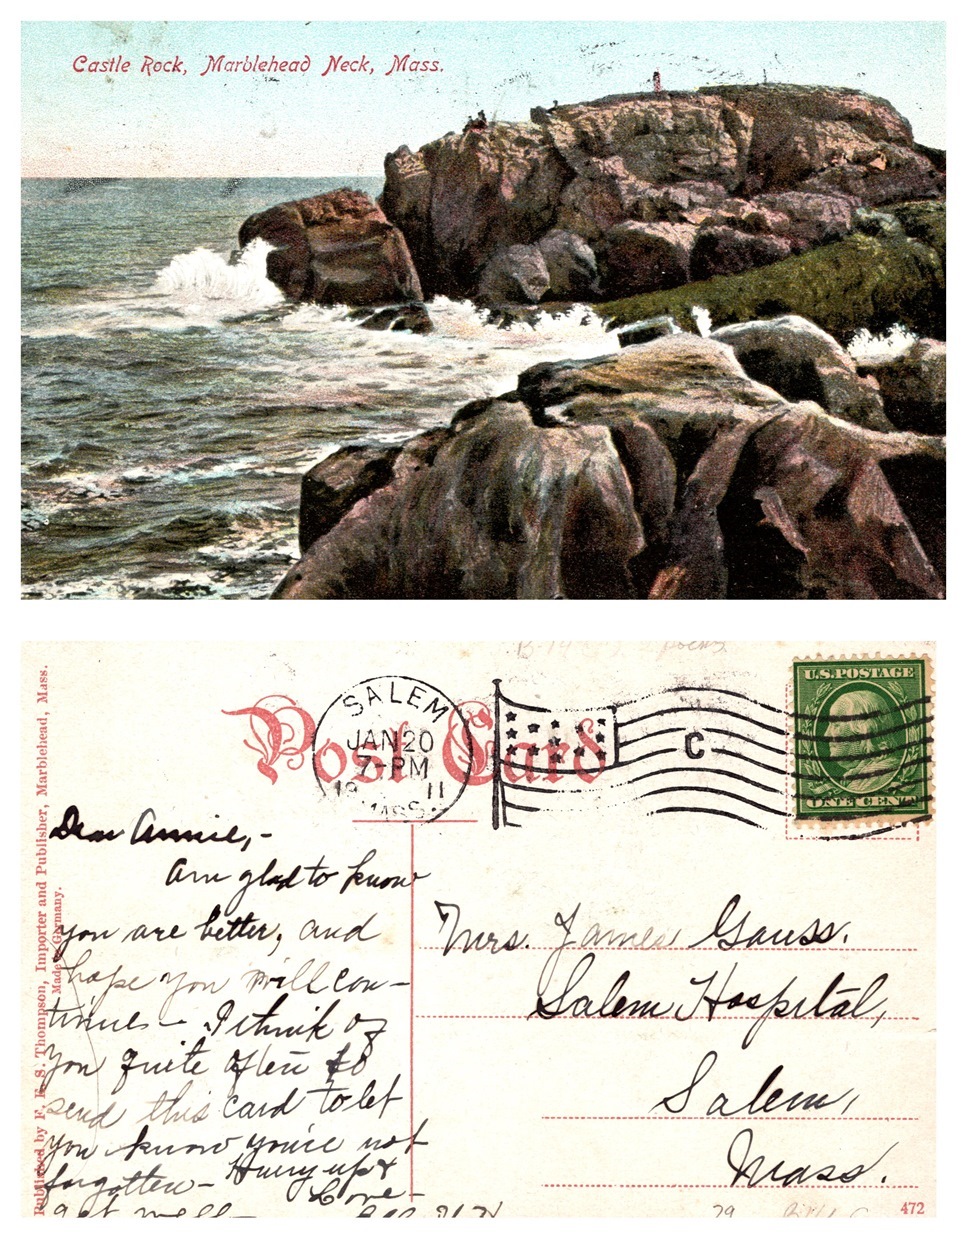 Castle Rock, Marblehead Neck, Mass.
Post Card
SALEM
JAN 20
7-PM
19 11
MASS.
C
U.S. POSTAGE
ONE CENT
Published by F. E. S. Thompson, Importer and Publisher, Marblehead, Mass.
Made in Germany.
Dear Annie,-
Am glad to know
you are better, and
hope you will con-
tinue - I think of
you quite often so
send this card to let
you know you're not
forgotten - Hurry up &
get well - Love -
Mrs. James Gauss.
Salem Hospital,
Salem,
Mass.
79
472